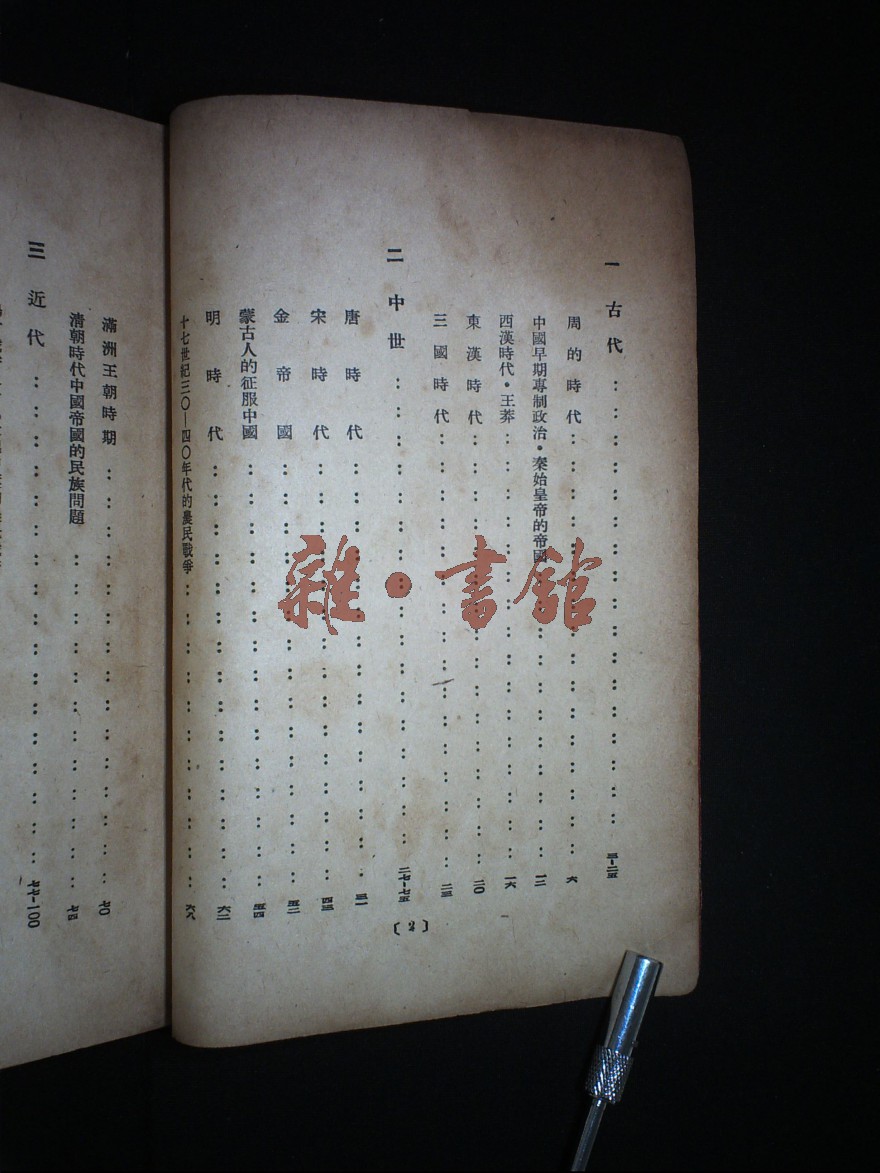 一 古代 ‥‥‥‥‥‥‥‥‥‥‥‥‥‥‥‥ 三-二五
周的時代 ‥‥‥‥‥‥‥‥‥‥‥‥‥‥‥‥ 六
中國早期專制政治·秦始皇帝的帝國 ‥‥‥‥‥‥‥‥‥‥ 一二
西漢時代·王莽 ‥‥‥‥‥‥‥‥‥‥‥‥‥‥‥‥ 一六
東漢時代 ‥‥‥‥‥‥‥‥‥‥‥‥‥‥‥‥ 二〇
三國時代 ‥‥‥‥‥‥‥‥‥‥‥‥‥‥‥‥ 二三
二 中世 ‥‥‥‥‥‥‥‥‥‥‥‥‥‥‥‥ 二七-七五
唐時代 ‥‥‥‥‥‥‥‥‥‥‥‥‥‥‥‥ 三一
宋時代 ‥‥‥‥‥‥‥‥‥‥‥‥‥‥‥‥ 四三
金帝國 ‥‥‥‥‥‥‥‥‥‥‥‥‥‥‥‥ 五二
蒙古人的征服中國 ‥‥‥‥‥‥‥‥‥‥‥‥‥‥‥‥ 五四
明時代 ‥‥‥‥‥‥‥‥‥‥‥‥‥‥‥‥ 六二
十七世紀三〇—四〇年代的農民戰爭 ‥‥‥‥‥‥‥‥‥‥‥‥ 六八
〔2〕
滿洲王朝時期 ‥‥‥‥‥‥‥‥‥‥‥‥‥‥‥‥ 七〇
清朝時代中國帝國的民族問題 ‥‥‥‥‥‥‥‥‥‥‥‥‥ 七四
三 近代 ‥‥‥‥‥‥‥‥‥‥‥‥‥‥‥‥ 七七-100
雜·書館